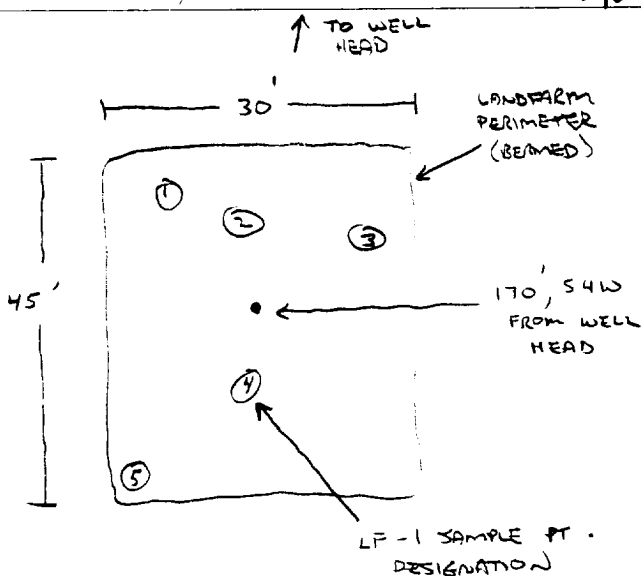 ↑ TO WELL
HEAD
30'
LANDFARM
PERIMETER
(BERMED)
①
②
③
45'
170', S4W
FROM WELL
HEAD
④
⑤
LF-1 SAMPLE PT.
DESIGNATION